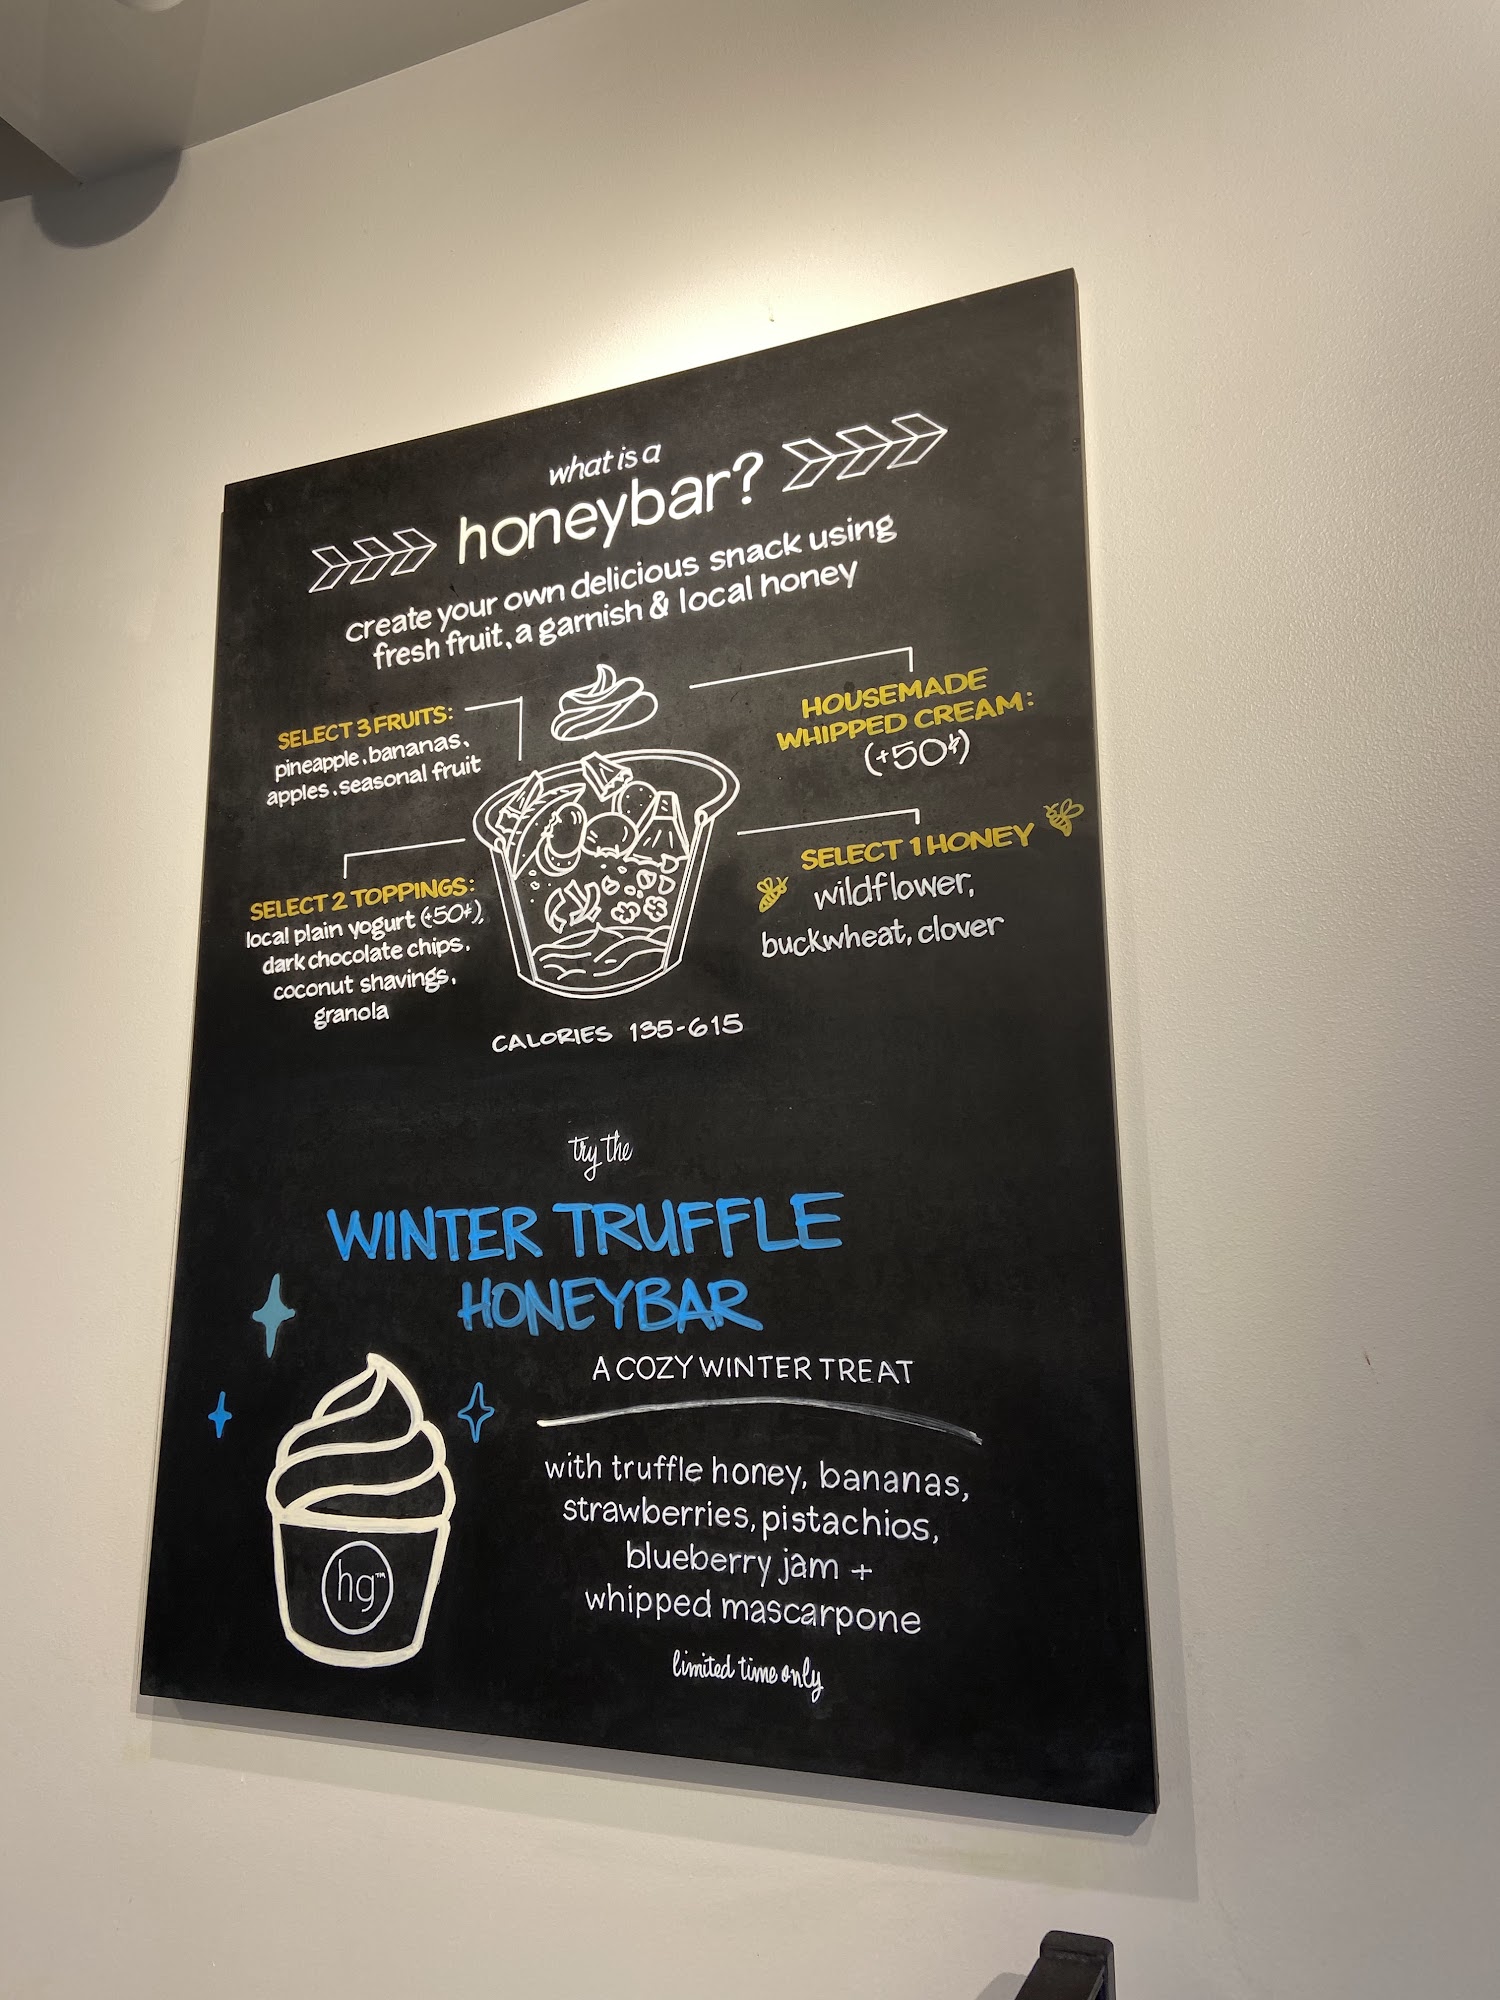 what is a
honeybar?
create your own delicious snack using
fresh fruit, a garnish & local honey
SELECT 3 FRUITS:
pineapple, bananas,
apples, seasonal fruit
HOUSEMADE
WHIPPED CREAM:
(+50¢)
SELECT 2 TOPPINGS:
local plain yogurt (+50¢),
dark chocolate chips,
coconut shavings,
granola
SELECT 1 HONEY
wildflower,
buckwheat, clover
CALORIES 135-615
try the
WINTER TRUFFLE
HONEYBAR
A COZY WINTER TREAT
with truffle honey, bananas,
strawberries, pistachios,
blueberry jam +
whipped mascarpone
limited time only
hg™